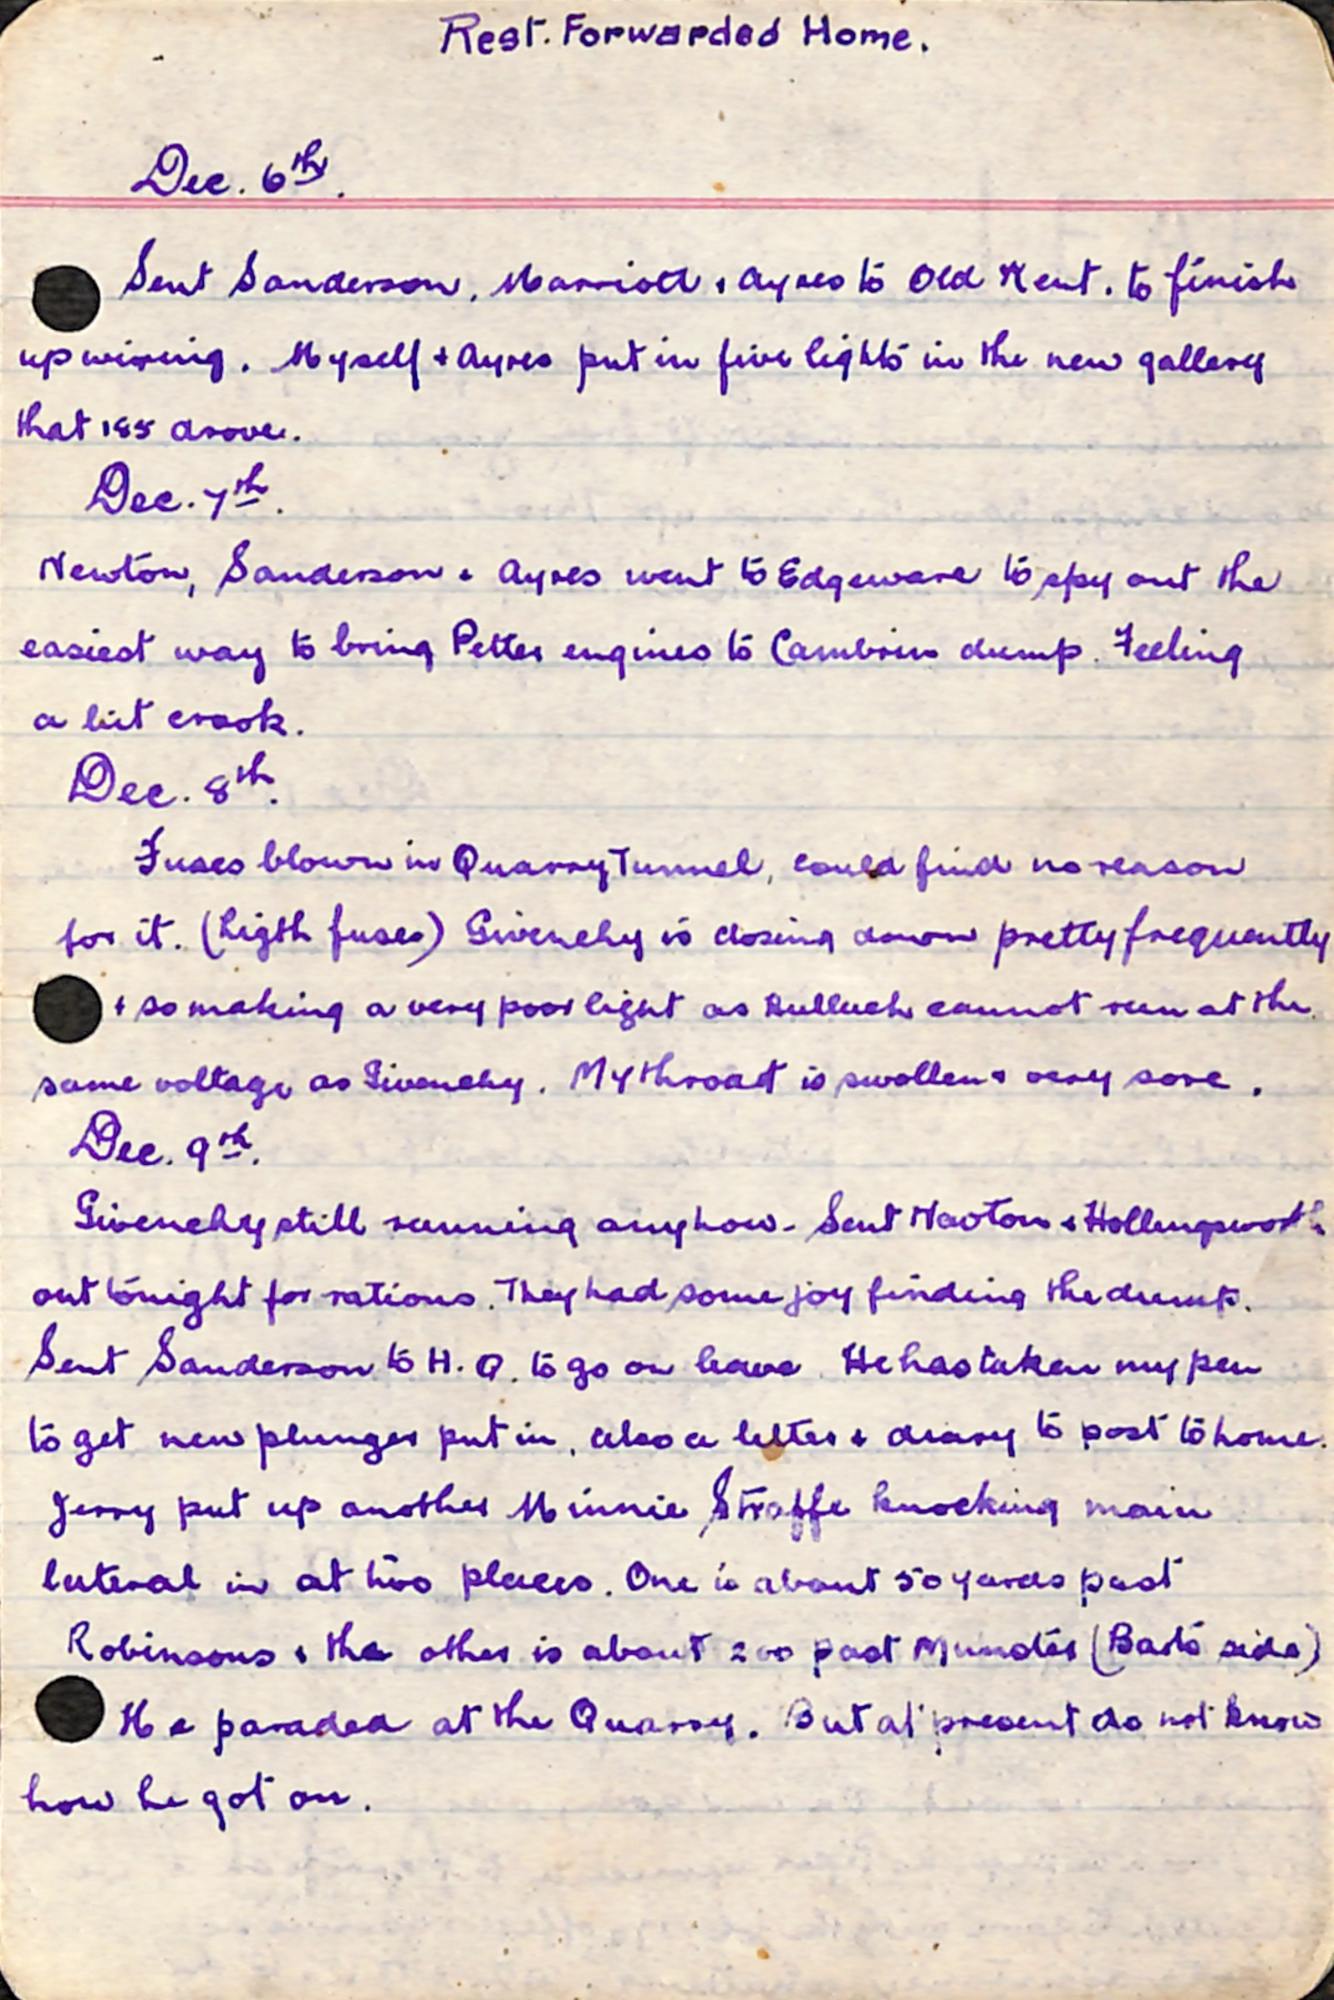 Rest. Forwarded Home.
Dec. 6th.
Sent Sanderson, Marriott & Ayres to Old Kent. to finish
up wiring. Myself & Ayres put in five lights in the new gallery
that 185 drove.
Dec. 7th.
Newton, Sanderson & Ayres went to Edgeware to spy out the
easiest way to bring Petter engines to Cambrin dump. Feeling
a bit crook.
Dec. 8th.
Fuses blown in Quarry Tunnel, could find no reason
for it. (Ligth fuses) Givenchy is closing down pretty frequently
& so making a very poor light as Hulluch cannot run at the
same voltage as Givenchy. My throat is swollen & very sore.
Dec. 9th.
Givenchy still running anyhow. Sent Newton & Hollingsworth
out tonight for rations. They had some joy finding the dump.
Sent Sanderson to H.Q. to go on leave. He has taken my pen
to get new plunger put in, also a letter & diary to post to home.
Jerry put up another Minnie Straffe knocking main
lateral in at two places. One is about 50 yards past
Robinsons & the other is about 200 past Mundes (Barts side)
He paraded at the Quarry. But at present do not know
how he got on.